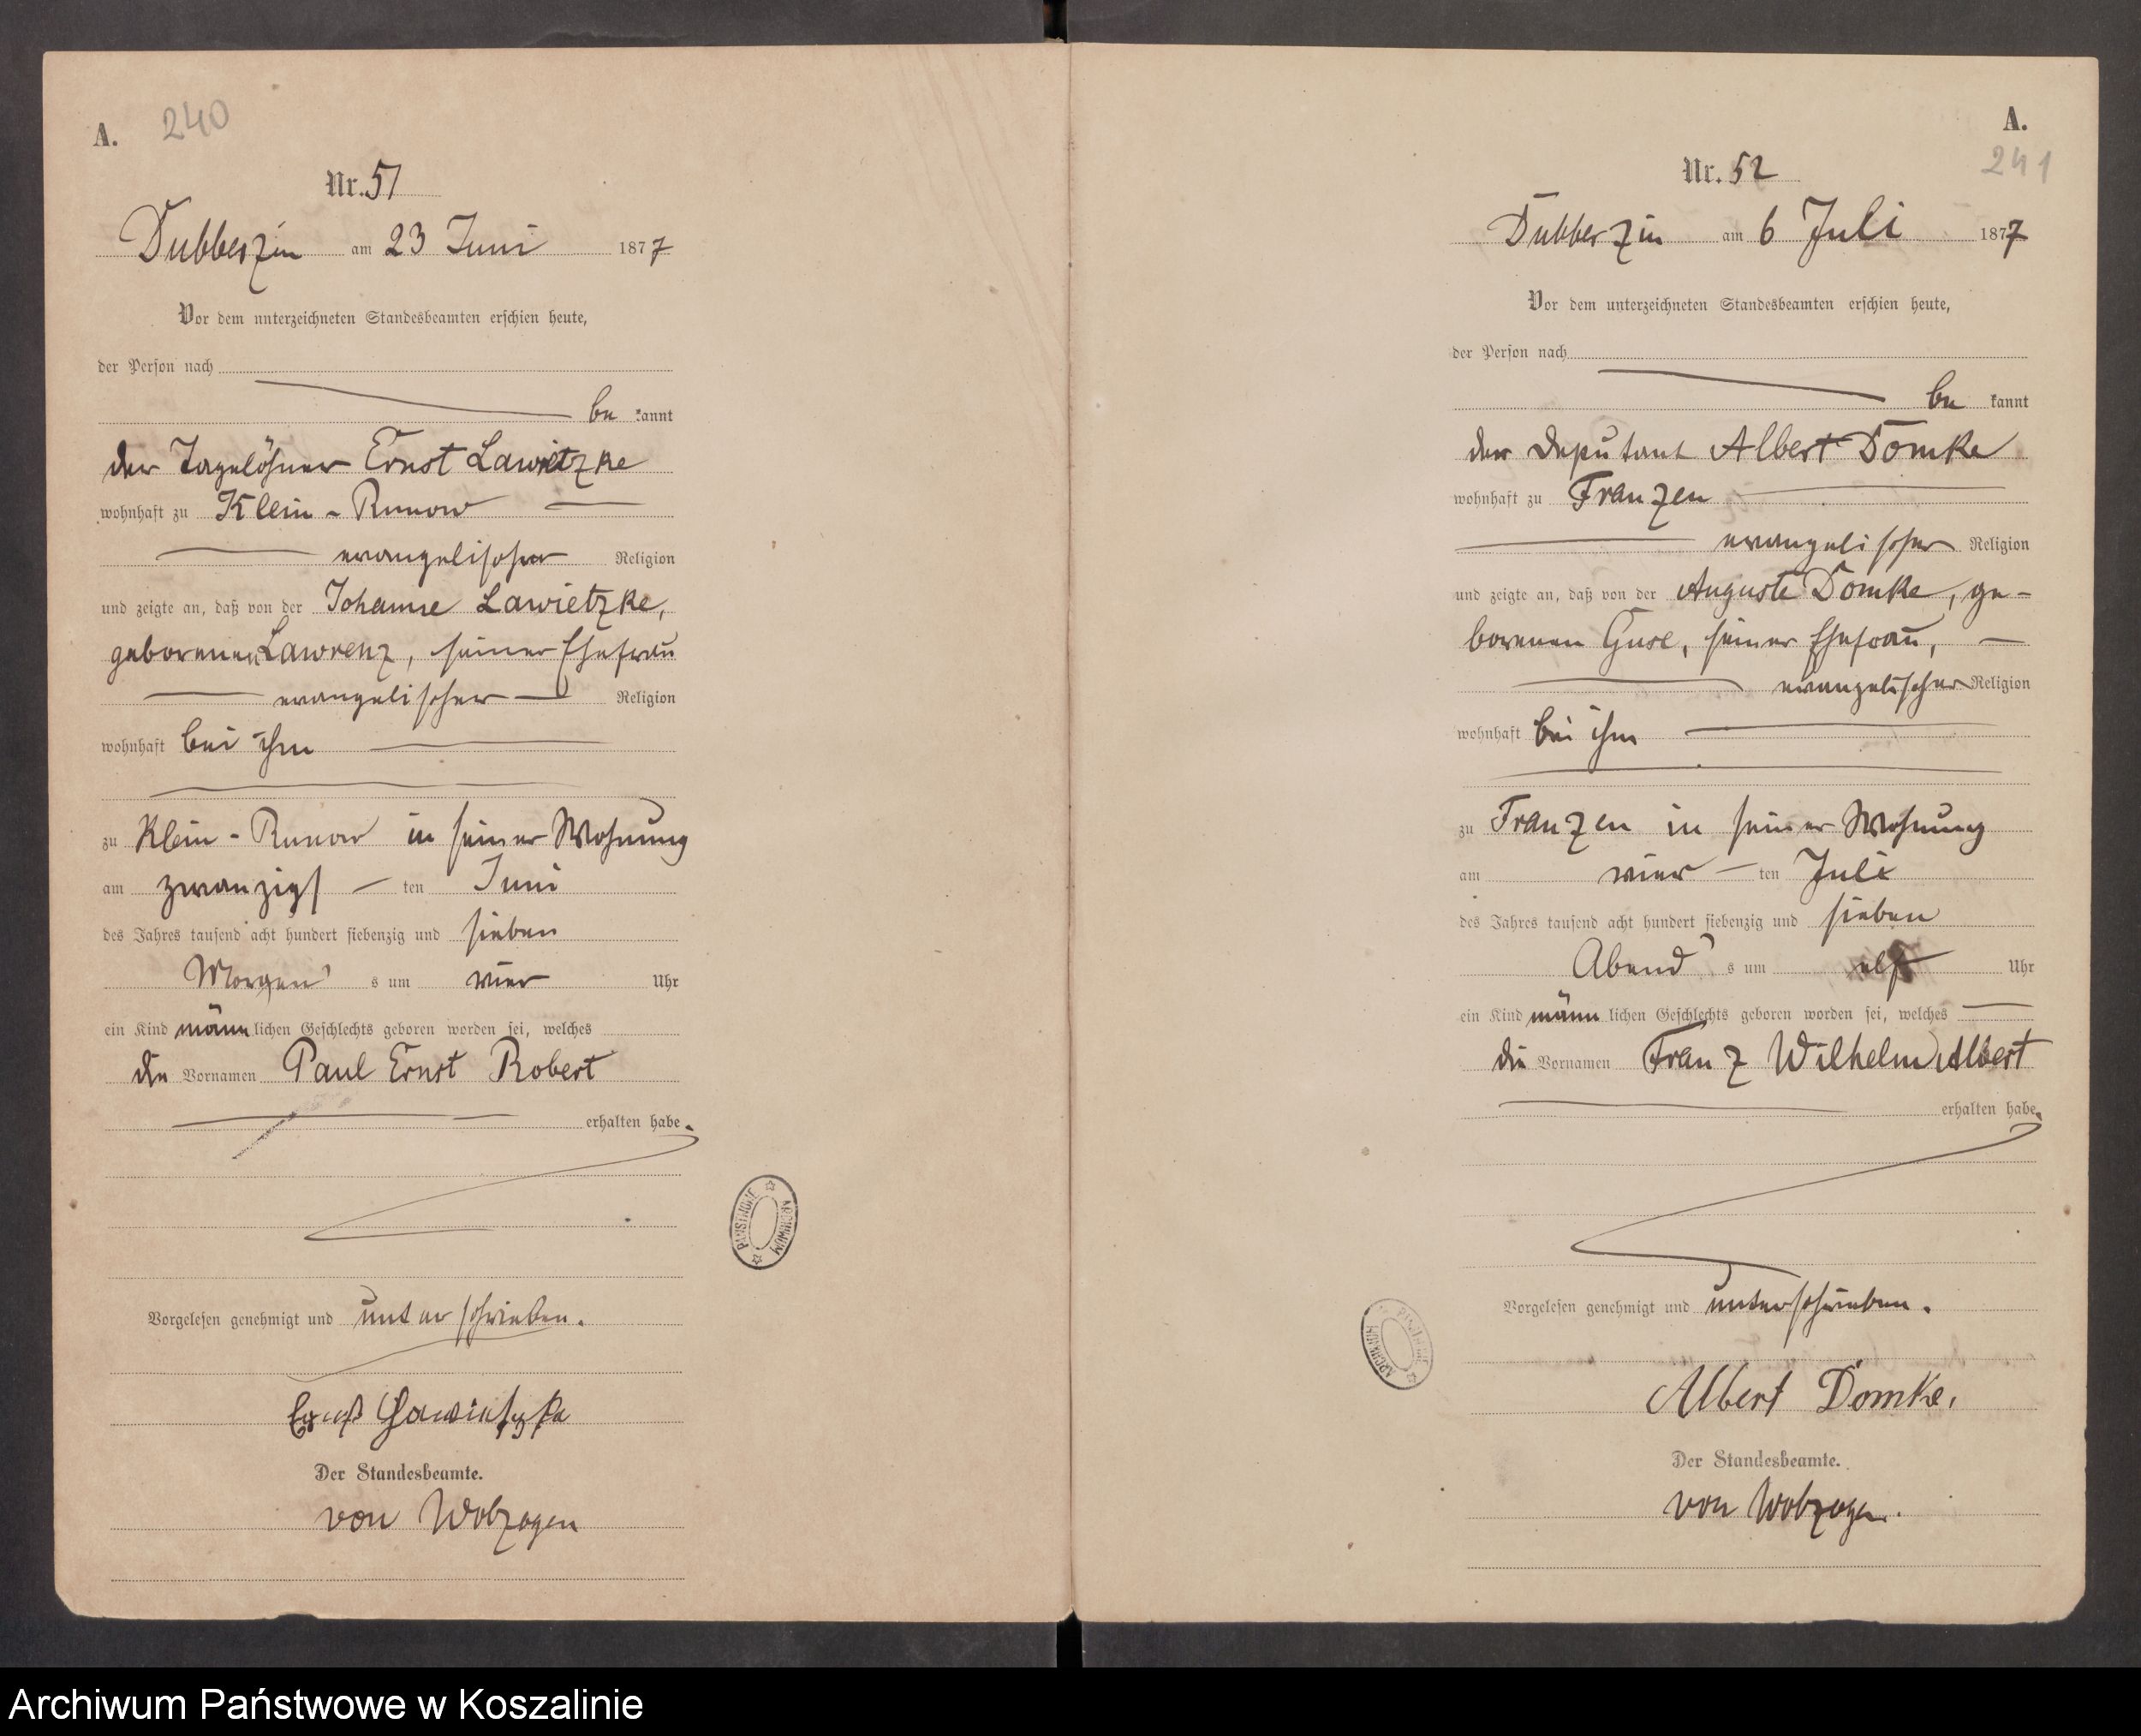 A. 240
Nr. 51
Dubberzin am 23 Juni 1877
Vor dem unterzeichneten Standesbeamten erschien heute,
der Person nach
be kannt
der Tagelöhner Ernst Lawietzke
wohnhaft zu Klein-Runow
evangelischer Religion
und zeigte an, daß von der Johanne Lawietzke,
geborenen Lawrenz, seiner Ehefrau
evangelischer Religion
wohnhaft bei ihm
zu Klein-Runow in seiner Wohnung
am zwanzigs ten Juni
des Jahres tausend acht hundert siebenzig und sieben
Morgen s um vier Uhr
ein Kind männ lichen Geschlechts geboren worden sei, welches
die Vornamen Paul Ernst Robert
erhalten habe.
Vorgelesen genehmigt und unterschrieben.
Ernst Lawietzke
Der Standesbeamte.
von Wolzogen
ARCHIWUM PAŃSTWOWE
A.
241
Nr. 52
Dubberzin am 6 Juli 1877
Vor dem unterzeichneten Standesbeamten erschien heute,
der Person nach
be kannt
der Deputant Albert Domke
wohnhaft zu Franzen
evangelischer Religion
und zeigte an, daß von der Auguste Domke, ge-
borenen Guse, seiner Ehefrau,
evangelischer Religion
wohnhaft bei ihm
zu Franzen in seiner Wohnung
am vier ten Juli
des Jahres tausend acht hundert siebenzig und sieben
Abend s um elf Uhr
ein Kind männ lichen Geschlechts geboren worden sei, welches
die Vornamen Franz Wilhelm Albert
erhalten habe.
Vorgelesen genehmigt und unterschrieben.
Albert Domke.
Der Standesbeamte.
von Wolzogen.
ARCHIWUM PAŃSTWOWE
Archiwum Państwowe w Koszalinie